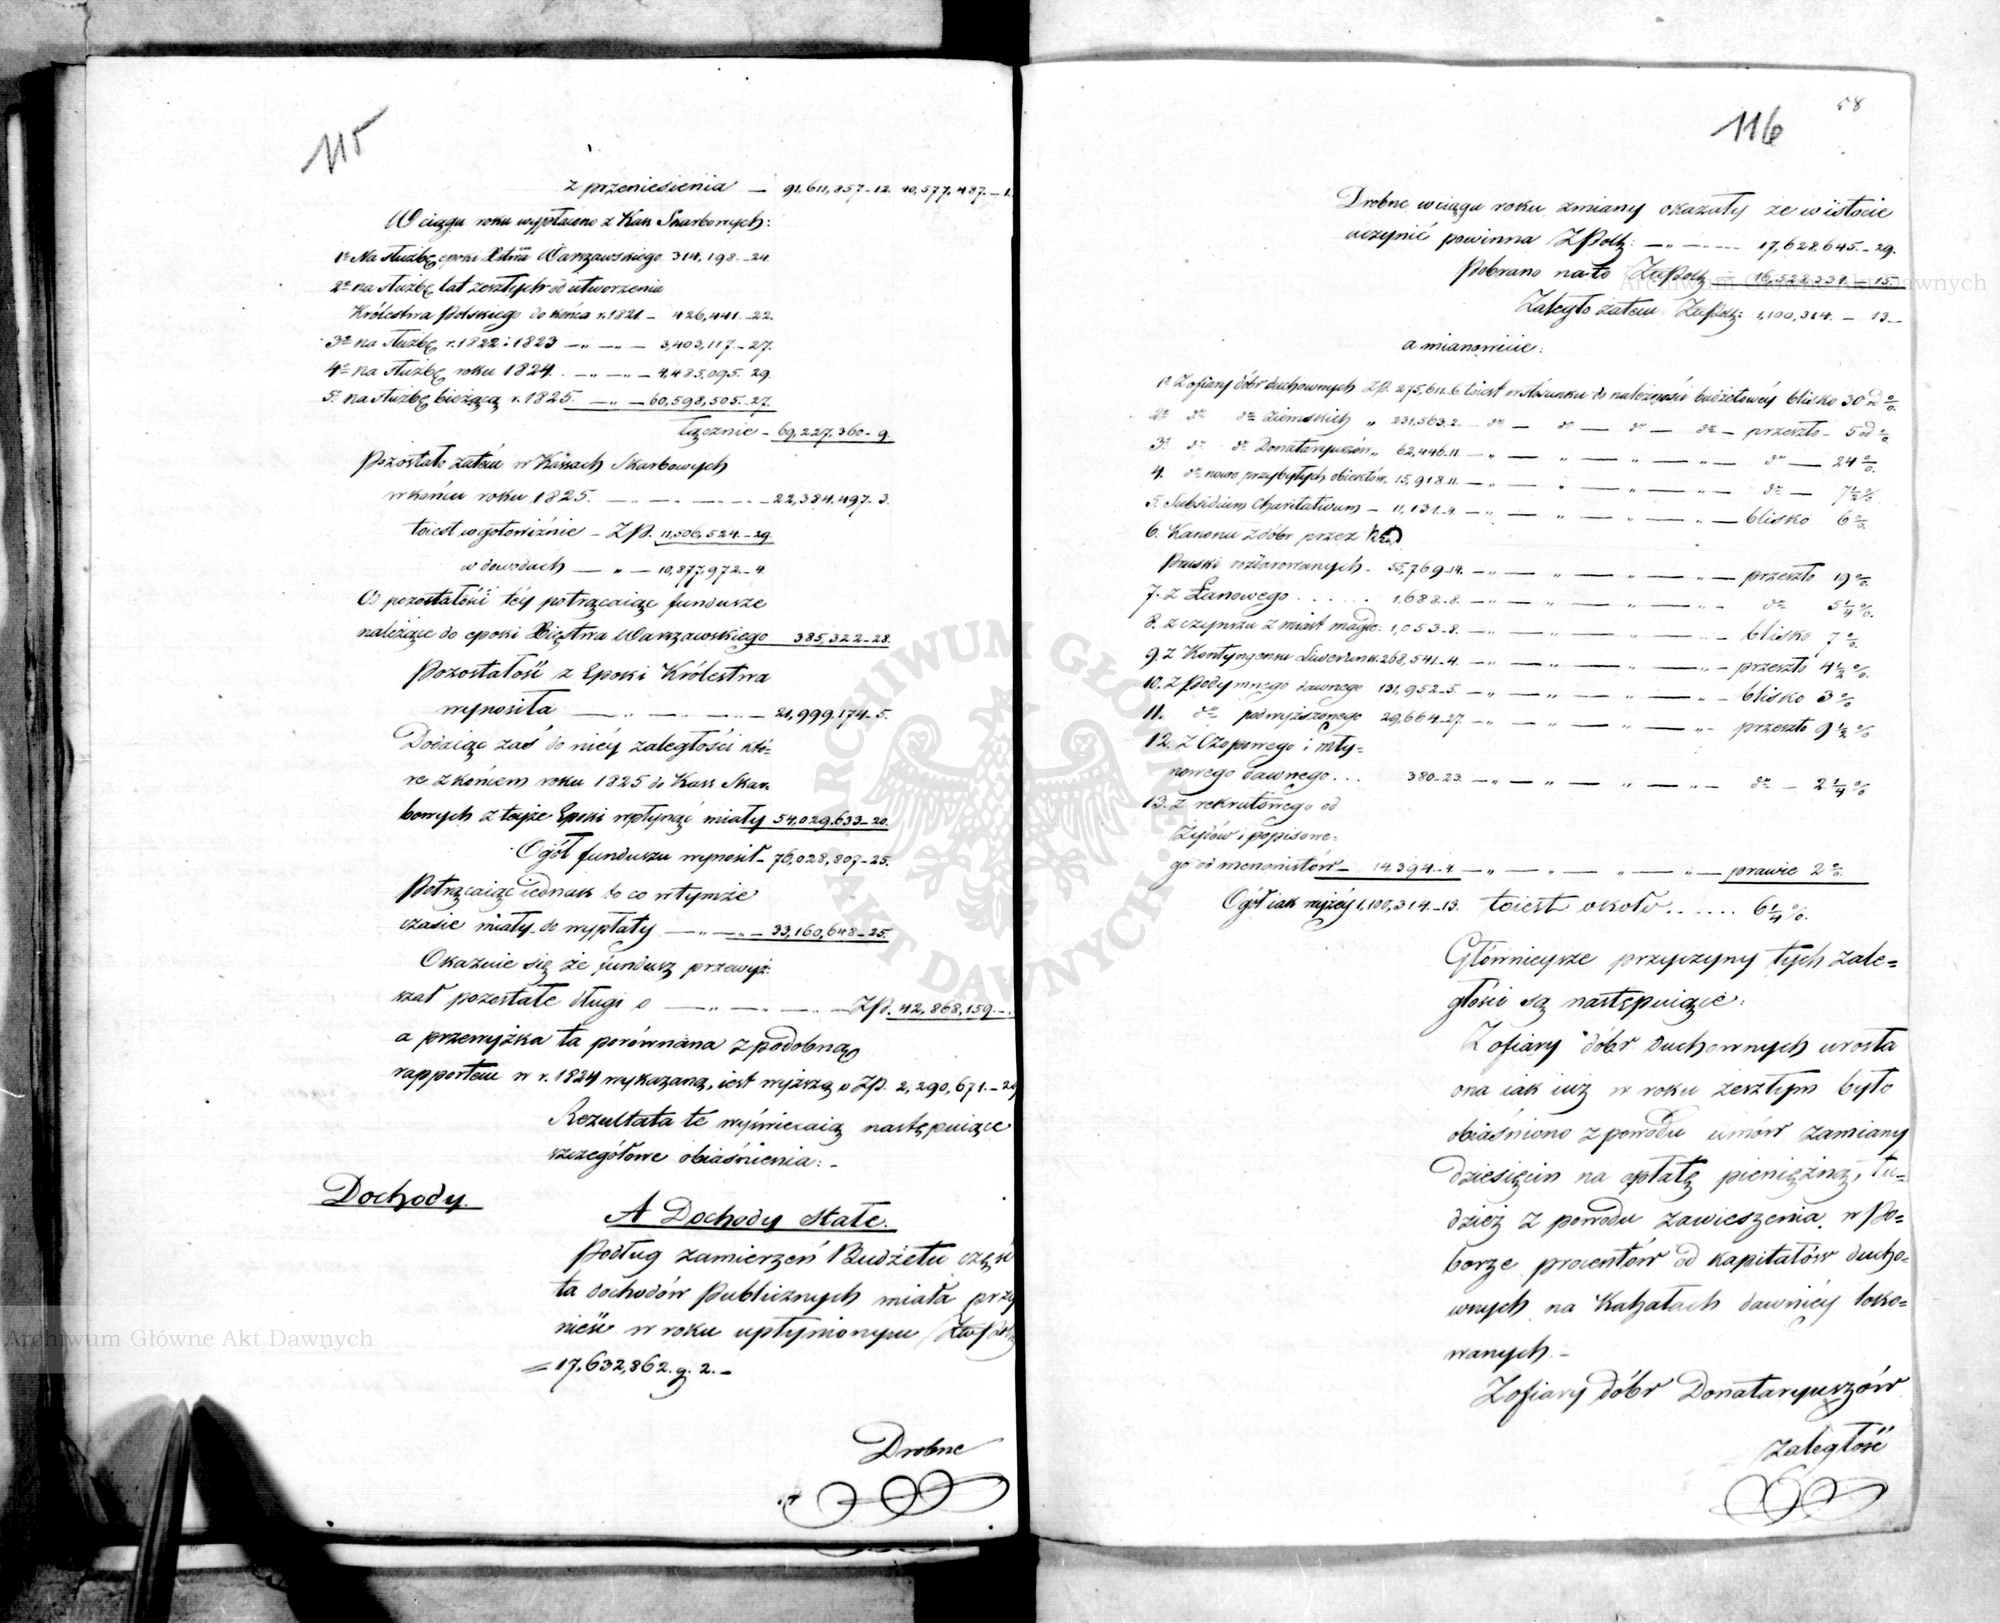 115
z przeniesienia — 91,611,857-12. 90,577,487.-1.
W ciągu roku wypłacono z Kass Skarbowych:
1° Na służbę epoki Xstwa Warszawskiego 314,198.-24.
2° na służbę lat zeszłych od utworzenia
Królestwa Polskiego do końca r. 1821 - 426,441.-22.
3° na służbę r. 1822 i 1823 — „ — „ — 3,403,117.-27.
4° na służbę roku 1824. — „ — „ — 4,485,095.29.
5. na służbę bieżącą r. 1825. — „ — 60,598,505.-27.
łącznie - 69,227,360-9.
Pozostało zatem w Kassach Skarbowych
w końcu roku 1825. — „ — „ — 22,384,497.3.
toiest w gotowiźnie - ZP. 11,506,524.-29.
w dowodach — „ — 10,877,972.-4.
Od pozostałości téy potrącaiąc fundusze
należące do epoki Xięstwa Warszawskiego 385,322-28.
Pozostałość z Epoki Królestwa
wynosiła — „ — „ — 21,999,174-5.
Dodaiąc zaś do niéy zaległości któ=
re z końcem roku 1825 do Kass Skar=
bowych z teyże Epoki wpłynąć miały 54,029,633-20.
Ogół funduszu wynosił - 76,028,807-25.
Potrącaiąc iednak to co w tymże
czasie miały do wypłaty — „ — „ — 33,160,648-25.
Okazuie się że fundusz przewyż=
szał pozostałe długi o — „ — „ — ZP. 42,868,159.-.
a przewyżka ta porównana z podobną
rapportem w r. 1824 wykazaną, iest wyższą o ZP. 2,290,671.-29
Rezultata te wyświecaią następuiące
szczegółowe obiaśnienia: -
Dochody.
A Dochody stałe.
Podług zamierzeń Budżetu część
ta dochodów Publicznych miała przy
nieść w roku upłynionym
= 17,632,862.g.2.-
Drobne
58
116
Drobne w ciągu roku zmiany okazały że w istocie
uczynić powinna ZPolk: — „ — 17,628,645.-29.
Pobrano na to 16,528,331.-15.
Zaległo zatem 1,100,314.-13-
a mianowicie:
1° Z ofiary dóbr duchownych ZP. 275,611.6. toiest w stosunku do należności budżetowéy blisko 30 od %.
2° d° d° ziemskich „ 231,563.2 - d° — d° — d° — d° — przeszło - 5 od %.
3° d° d° Donataryuszów „ 62,446.11. — „ — „ — „ — d° — 24 %.
4. d° nowo przybyłych obiektów. 15,918.11. — „ — „ — „ — d° — 7½ %
5. Subsidium Charitativum - 11,131.4. — „ — „ — „ — blisko 6 %.
6. Kanonu z dóbr przez Rząd
Pruski rozdarowanych - 55,769-14. — „ — „ — „ — przeszło 19 %.
7. z Łanowego . . . . . 1,688-8. — „ — „ — „ — d° 5¼ %.
8. z czynszu z miast magde: 1,053-8. — „ — „ — „ — blisko 7 %.
9. z Kontyngensu Liwerunk. 268,541-4. — „ — „ — „ — przeszło 4½ %.
10. z Podymnego dawnego 131,952-5. — „ — „ — „ — blisko 3 %
11. d° podwyższonego 29,664-27. — „ — „ — „ — przeszło 9½ %
12. z Czopowego i mły=
nowego dawnego. . . 380-23. — „ — „ — „ — d° — 2¼ %
13. z rekrutowego od
Żydów i popisowe=
go od menonistów — 14,394-4. — „ — „ — „ — prawie 2 %.
Ogół iak wyżéy 1,100,314.-13. toiest około . . . . . . 6¼ %.
Głównieysze przyczyny tych zale=
głości są następuiące:
Z ofiary dóbr duchownych urosła
ona iak iuż w roku zeszłym było
obiaśniono z powodu umów zamiany
dziesięcin na opłatę pieniężną, tu=
dzież z powodu zawieszenia w Po=
borze procentów od kapitałów ducho=
wnych na Kahałach dawniéy loko=
wanych. -
Z ofiary dóbr Donataryuszów
zaległość
Archiwum Główne Akt Dawnych
Archiwum Główne Akt Dawnych
ARCHIWUM GŁÓWNE AKT DAWNYCH